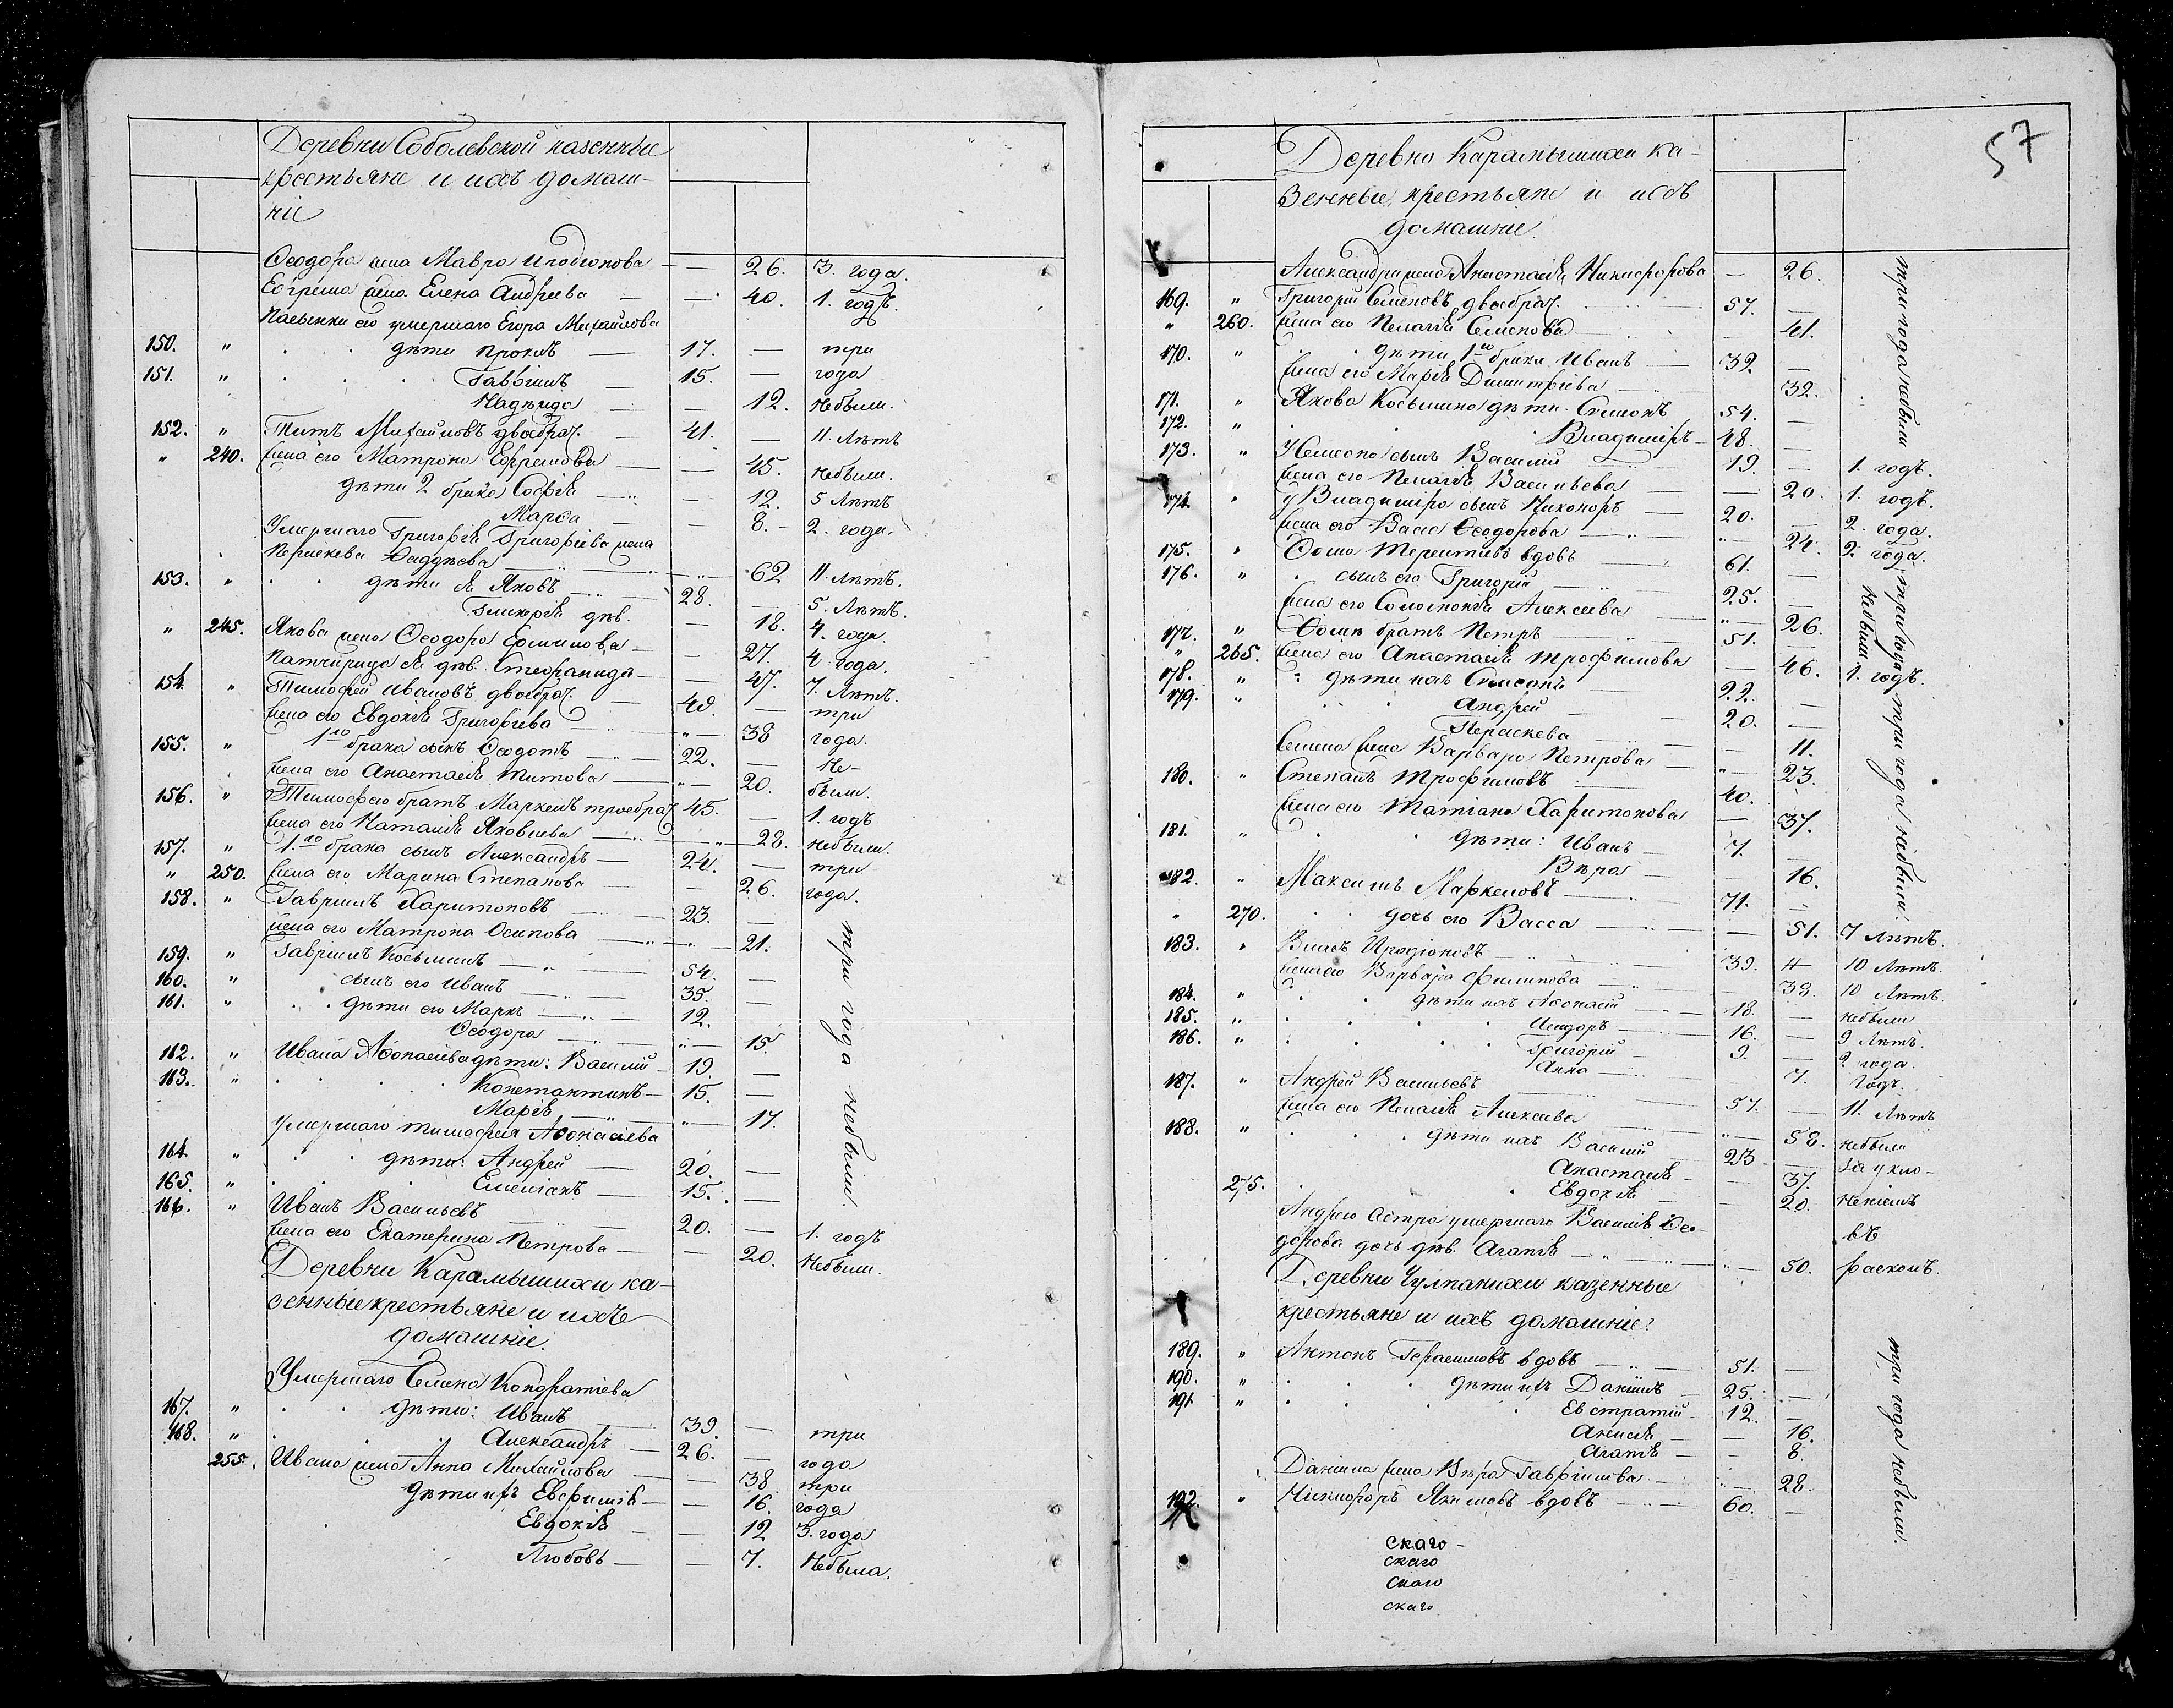 Деревни Соболевской казенные
крестьяне и ихъ домаш-
ніе
Ѳеодора жена Мавра Иродіонова — — 26. 3. года.
Ефрема жена Елена Андреева — — 40. 1. годъ.
Пасынки его умершаго Егора Михайлова
150. " дѣти Проклъ — 17. — три
151. " Гавріилъ — 15. — года
Надежда — — 12. небыли.
152. " Титъ Михайловъ двоебрач. — 41. — 11. лѣтъ
" 240. жена его Матрона Ефремова — — 45. небыли.
дѣти 2 брака Софія — — 12. 5 лѣтъ
Марѳа — — 8. 2. года.
Умершаго Григорія Григоріева жена
Параскева Ѳаддѣева — — 62 11. лѣтъ.
153. " дѣти ея Яковъ — 28. — 5. лѣтъ.
Гликерія дѣв. — 18. 4. года
" 245. Якова жена Ѳеодора Ермилова — — 27. 4. года.
Падчерица ея дѣв. Стефанида — — 47. 7. лѣтъ.
154. " Тимофей Ивановъ двоебрач. — 40. — три
жена его Евдокія Григорьева — " — 38 года.
155. " 1го брака сынъ Ѳеодотъ — 22. — не-
жена его Анастасія Титова — " — 20. были.
156. " Тимофея братъ Маркелъ троебрач. 45. — 1. годъ
жена его Наталія Яковлева — " — 28. небыли.
157. " 1.го брака сынъ Александръ — 24. — три
" 250. жена его Марина Степанова — — 26. года.
158. " Гавріилъ Харитоновъ — 23. —
жена его Матрона Осипова — " — 21.
159. " Гавріилъ Косьминъ — 54. —
160. " сынъ его Иванъ — 35. —
161. " дѣти его Маркъ — 12. —
Ѳеодора — " — 15.
162. " Ивана Аѳонасіева дѣти: Василій — 19. —
163. " Константинъ — 15. —
Марія — " — 17.
умершаго Тимофея Аѳонасіева
164. " дѣти: Андрей — 20. —
165. " Емеліанъ — 15. —
три года небыли.
166. " Иванъ Васильевъ — 20. — 1. годъ
жена его Екатерина Петрова — — 20. небыли.
Деревни Карамышихи ка-
зенные крестьяне и ихъ
домашніе.
Умершаго Семена Кондратіева
167. " дѣти: Иванъ — 39. — три
168. " Александръ — 26. — года
255. Ивана жена Анна Михайлова — — 38. три
дѣти ихъ Евфимія — — 16. года
Евдокія — — 12 3. года
Любовь — — 7. небыла.
57
Деревни Карамышихи ка-
зенные крестьяне и ихъ
домашніе.
Александра жена Анастасія Никифорова — 26.
169. " Григорій Семеновъ двоебрач. — 57. —
" 260. жена его Пелагія Семенова — — 41.
170. " дѣти 1го брака Иванъ — 32. —
жена его Марія Димитріева — 32.
три года небыли
171. " Якова Косьмина дѣти. Симеонъ 54. —
172. " Владиміръ — 48. —
173. " У Семена сынъ Василій — 19. — 1. годъ.
жена его Пелагія Васильева — — 20. 1. годъ.
174. " У Владиміра сынъ Никоноръ — 20. — 2. года.
жена его Васса Ѳеодорова — " — 24. 2. года.
175. " Ѳома Терентіевъ вдовъ — 61. —
176. " сынъ его Григорій — 25. —
жена его Соломонія Алексеева — " — 26.
три года небыли
177. " Ѳомы братъ Петръ — 51. —
" 265. жена его Анастасія Трофимова — — 46. 1. годъ.
178. " дѣти ихъ Симеонъ — 22. —
179. " Андрей — 20. —
Параскева — — 11.
Семена жена Варвара Петрова — " — 23.
180. " Стефанъ Трофимовъ — 40. —
жена его Татіана Харитонова — 37.
181. " дѣти: Иванъ — 7. —
Вѣра — — 16.
три года небыли.
182. " Максимъ Маркеловъ — 71. —
" 270. дочь его Васса — — 51. 7 лѣтъ.
183. " Власъ Иродіоновъ — 39. — 10 лѣтъ.
жена его Варвара Филипова — — 38. 10 лѣтъ.
184. " дѣти ихъ Аѳонасій — 18. — небыли
185. " Исидоръ — 16. — 9 лѣтъ.
186. " Григорій — 9. — 2 года.
Анна — — 7. годъ.
187. " Андрей Васильевъ — 57. — 11. лѣтъ
жена его Пелагія Алексеева — " — 58. небыли
188. " дѣти ихъ Василій — 23 — за укло-
Анастасія — — 37. неніемъ
275. Евдокія — — 20. въ
Андрея сестра умершаго Василія Ѳео-
дорова дочь дѣв. Агапія — " — 50. расколъ.
Деревни Чулпанихи казенные
крестьяне и ихъ домашніе:
189. " Антонъ Герасимовъ вдовъ — 51. —
190. " дѣти ихъ Даніилъ — 25. —
191. " Евстратій — 12. —
Анисія — — 16.
Агапія — — 8.
Даніила жена Вѣра Гавріилова — " — 28.
192. " Никифоръ Якимовъ вдовъ — 60. —
три года небыли.
скаго -
скаго
скаго
скаго